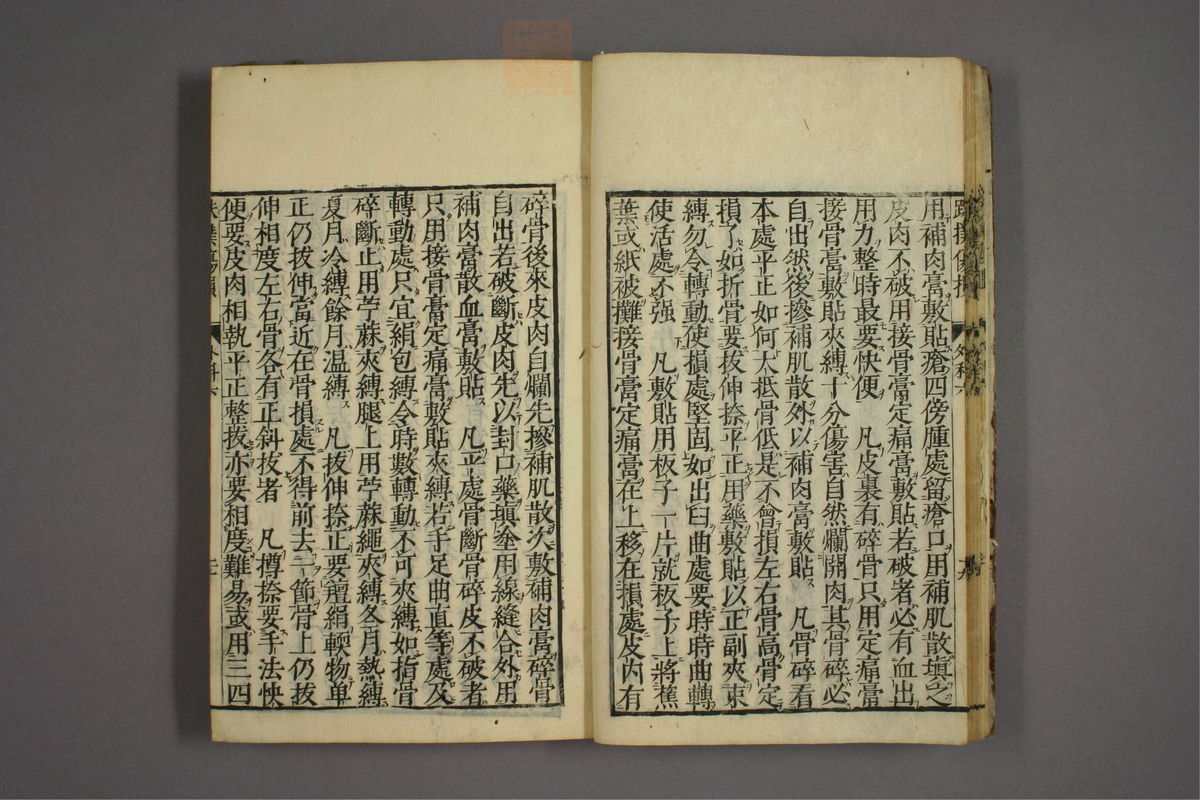 用補肉膏敷貼瘡四傍腫處留瘡口用補肌散填之
皮肉不破用接骨膏定痛膏敷貼若破者必有血出
用力整時最要快便　凡皮裏有碎骨只用定痛膏
接骨膏敷貼夾縛十分傷害自然爛開肉其骨碎必
自出然後摻補肌散外以補肉膏敷貼　凡骨碎看
本處平正如何大抵骨低是不曾損左右骨高骨定
損了如折骨要拔伸捺平正用藥敷貼以正副夾束
縛勿令轉動使損處堅固如出臼曲處要時時曲轉
使活處不强　凡敷貼用板子一片就板子上將蕉
葉或紙被攤接骨膏定痛膏在上移在損處皮內有
碎骨後來皮肉自爛先摻補肌散次敷補肉膏碎骨
自出若破斷皮肉先以封口藥填塗用線縫合外用
補肉膏散血膏敷貼　凡平處骨斷骨碎皮不破者
只用接骨膏定痛膏敷貼夾縛若手足曲直等處及
轉動處只宜絹包縛令時數轉動不可夾縛如指骨
碎斷止用苧蔴夾縛腿上用苧蔴繩夾縛冬月熱縛
夏月冷縛餘月温縛　凡拔伸捺正要䡖絹軟物單
正仍拔伸當近在骨損處不得前去一節骨上仍拔
伸相度左右骨各有正斜拔者　凡撙捺要手法快
便要皮肉相執平正整拔亦要相度難易或用三四